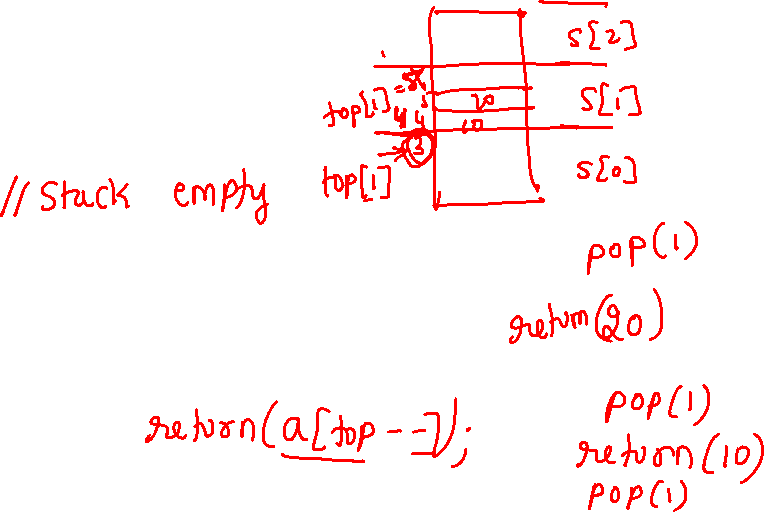 s[2]
top[1] = 5
5
20
s[1]
4 4 10
3
// Stack empty top[1] s[0]
pop(1)
return(20)
return(a[top--]);
pop(1)
return(10)
pop(1)